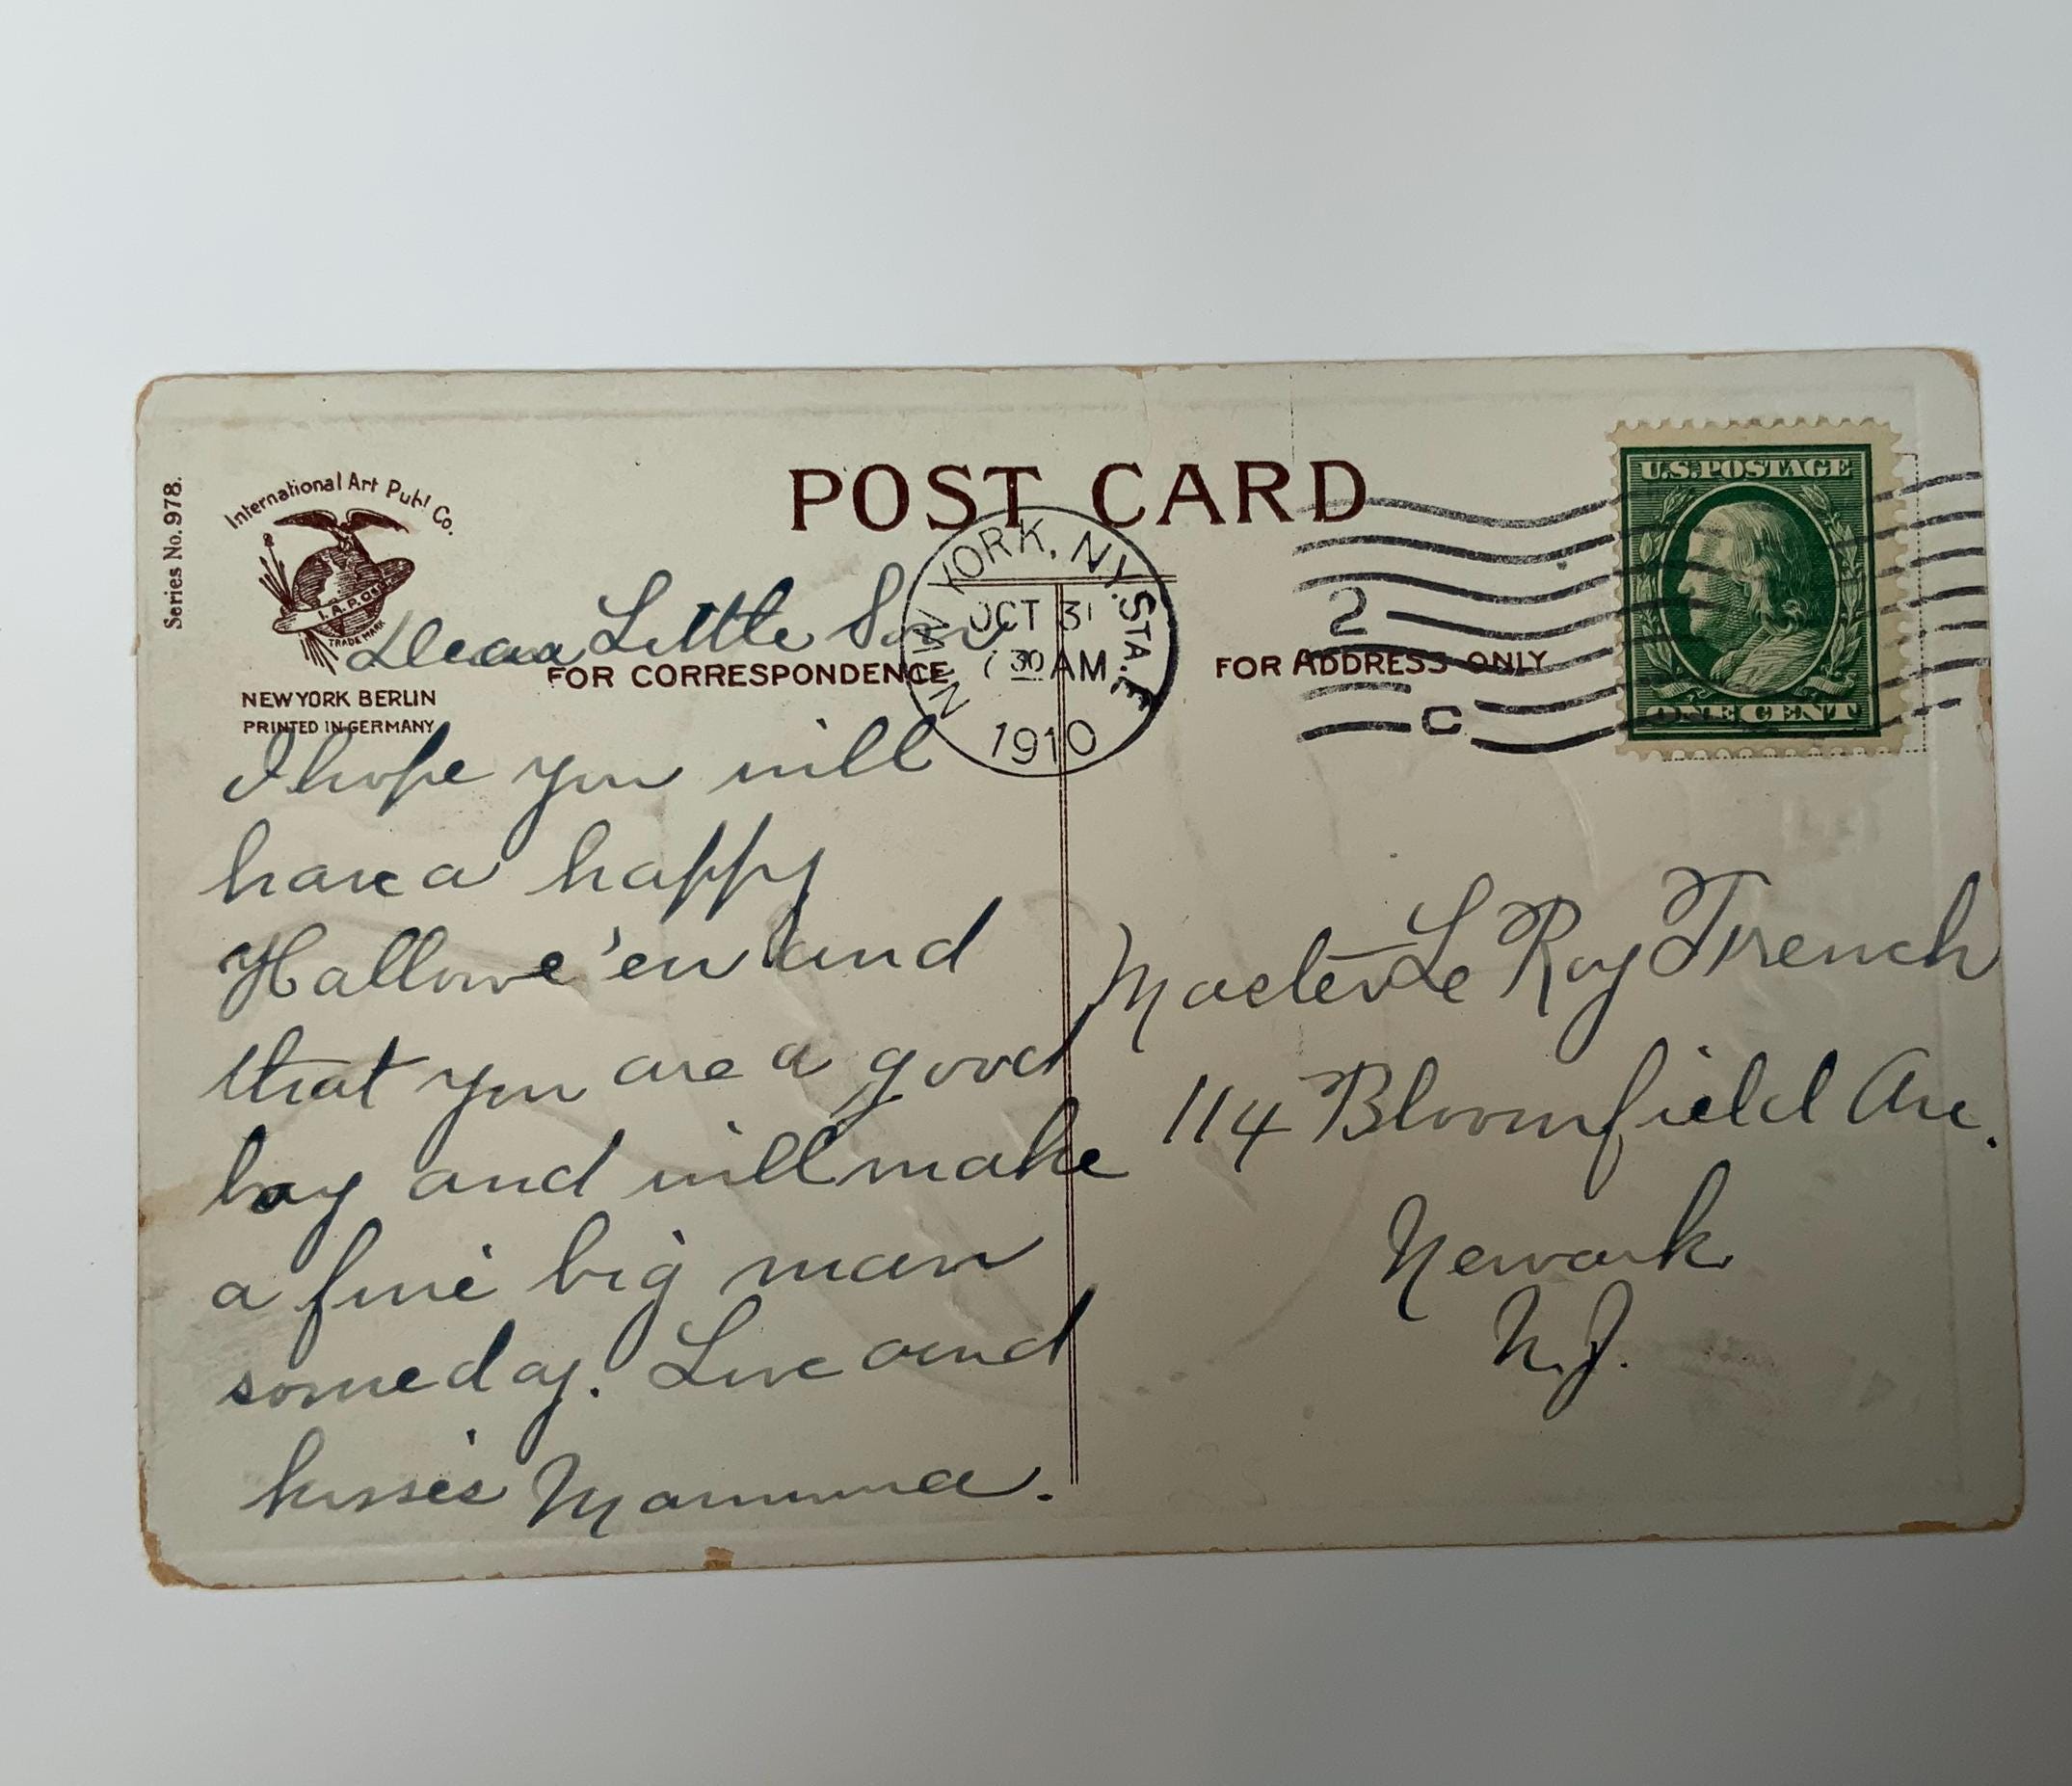 Series No. 978.
International Art Publ. Co.
I.A.P.Co.
TRADE MARK
NEW YORK BERLIN
PRINTED IN GERMANY
POST CARD
FOR CORRESPONDENCE
Dear Little Son
I hope you will
have a happy
Hallowe'en and
that you are a good
boy and will make
a fine big man
someday. Love and
kisses Mamma.
NEW YORK, N.Y. STA. F
OCT 31
30 AM
1910
2
C
U.S. POSTAGE
ONE CENT
FOR ADDRESS ONLY
Master Le Roy French
114 Bloomfield Ave.
Newark
N.J.